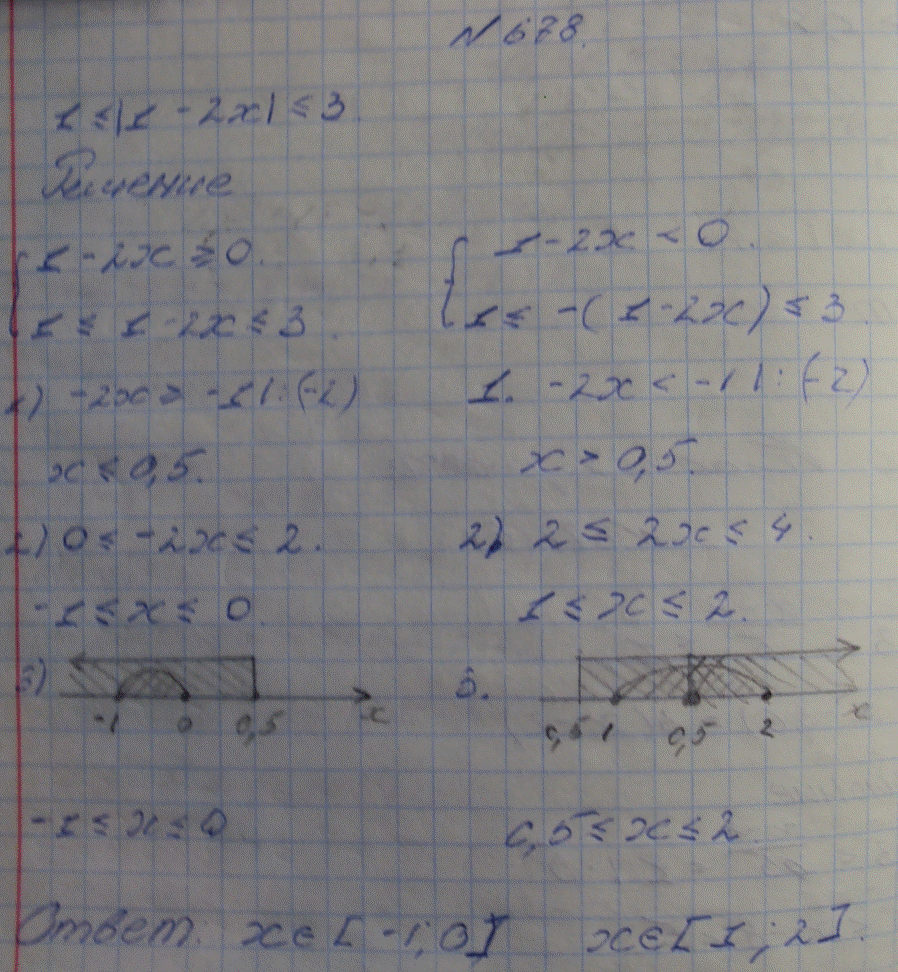 № 678.
1 ≤ |1 - 2x| ≤ 3
Решение
{ 1 - 2x ≥ 0.
1 ≤ 1 - 2x ≤ 3.
1) -2x ≥ -1 | : (-2)
x ≤ 0,5.
2) 0 ≤ -2x ≤ 2.
-1 ≤ x ≤ 0
3)
-1 0 0,5 x
-1 ≤ x ≤ 0
{ 1 - 2x < 0.
1 ≤ -(1 - 2x) ≤ 3.
1. -2x < -1 | : (-2)
x > 0,5.
2) 2 ≤ 2x ≤ 4.
1 ≤ x ≤ 2.
3.
0,5 1 0,5 2 x
0,5 ≤ x ≤ 2.
Ответ: x ∈ [-1; 0] x ∈ [1; 2].